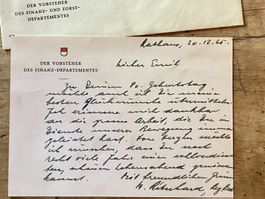 DER VORSTEHER
DES FINANZ- UND FORST-
DEPARTEMENTES
DER VORSTEHER
DES FINANZ-DEPARTEMENTES
Rathaus, 20.12.45.
Lieber Emil
Zu Deinem 80. Geburtstag
möchte auch ich Dir meine
besten Glückwünsche übermitteln.
Ich erinnere mich dankbar
an die grosse Arbeit, die Du im
Dienste unserer Bewegung
geleistet hast. Von Herzen möchte
ich wünschen, dass Du noch
recht viele Jahre einen
schönen Lebensabend geniessen
kannst.
Mit freundlichen Grüssen